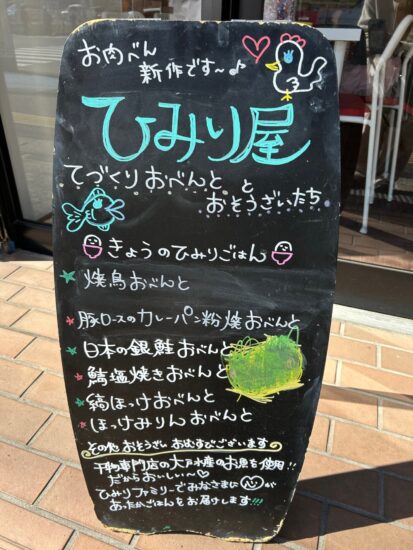 お肉べん
新作です〜♪
ひみり屋
てづくりおべんと と
おそうざいたち
きょうのひみりごはん
焼鳥おべんと
豚ロースのカレーパン粉焼おべんと
日本の銀鮭おべんと
鯖塩焼きおべんと
縞ほっけおべんと
ほっけみりんおべんと
その他 おそうざい おむすびございます
干物専門店の大戸水産のお魚を使用!!
だからおいしい〜♡
ひみりファミリーでみなさまに が
あったかごはんをお届けします!!!